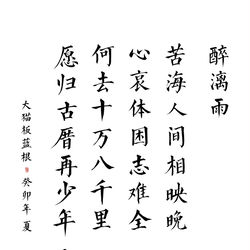 醉漓雨
苦海人间相映晚
心哀体困志难全
何去十万八千里
愿归古厝再少年
犬猫板蓝根 癸卯年 夏